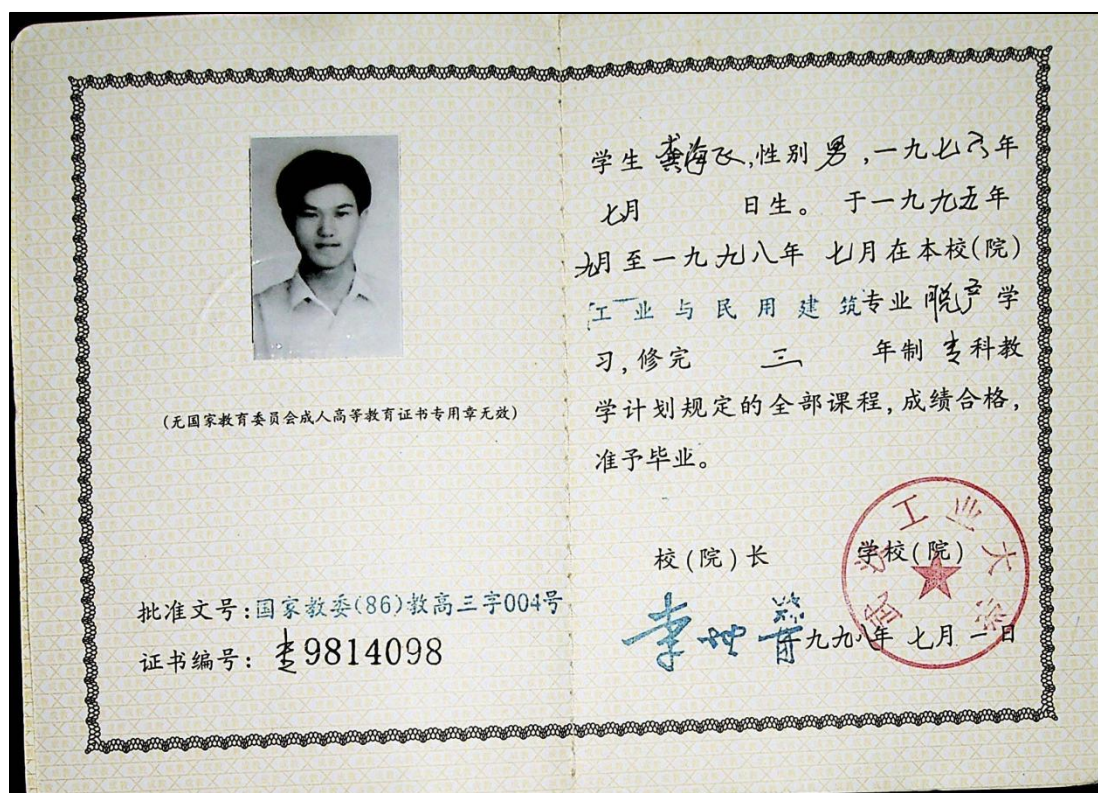 (无国家教育委员会成人高等教育证书专用章无效)
批准文号:国家教委(86)教高三字004号
证书编号: 专9814098
学生 龚海飞,性别 男 ,一九七六年
七月 日生。 于一九九五年
九月至一九九八年 七月在本校(院)
工业与民用建筑专业 脱产 学
习,修完 三 年制 专科教
学计划规定的全部课程,成绩合格,
准予毕业。
校(院)长 学校(院)
李
一九九八年 七月 一日
工业大学